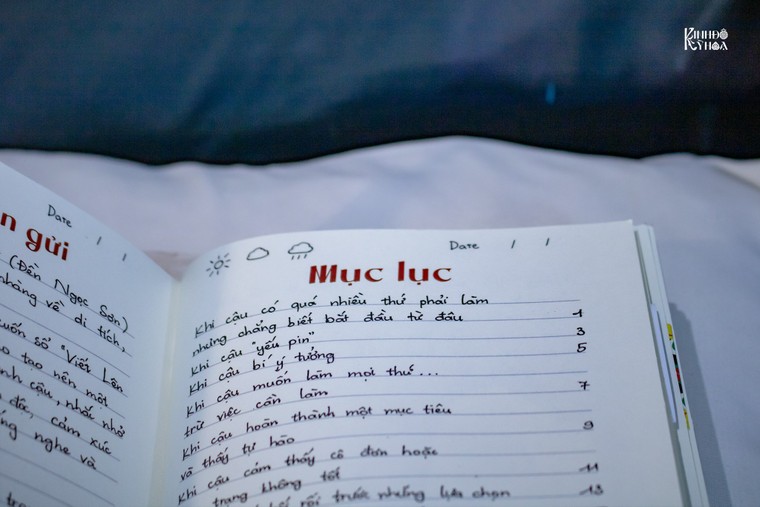 KINH ĐÔ
KỲ HÒA
Date / /
n gửi
(Đền Ngọc Sơn)
nhàng về di tích,
uốn sổ "Viết Lên
o tạo nên một
ình cậu, nhắc nhở
đã, cảm xúc
ng nghe và
trọ
Date / /
Mục lục
Khi cậu có quá nhiều thứ phải làm
nhưng chẳng biết bắt đầu từ đâu 1
Khi cậu "yếu pin" 3
Khi cậu bí ý tưởng 5
Khi cậu muốn làm mọi thứ...
trừ việc cần làm 7
Khi cậu hoàn thành một mục tiêu
và thấy tự hào 9
Khi cậu cảm thấy cô đơn hoặc
trạng không tốt 11
bối rối trước những lựa chọn 13